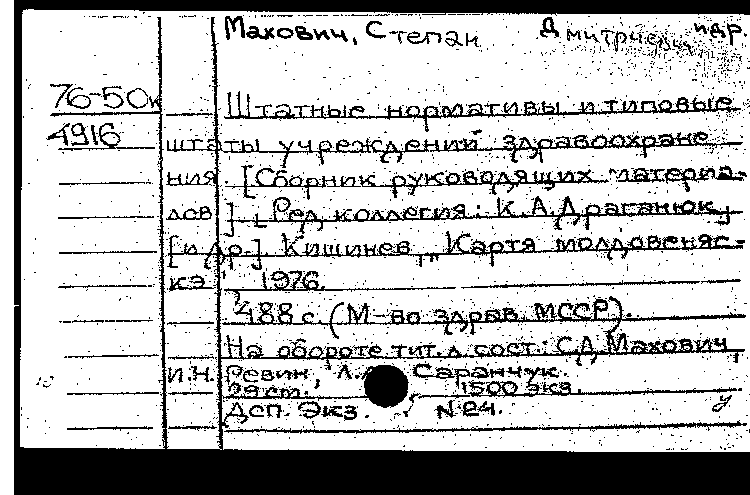 Махович, Степан Дмитриевич и др.
76-50к
4916
Штатные нормативы и типовые
штаты учреждений здравоохране
ния. [Сборник руководящих материа-
лов]. [Ред. коллегия: К.А.Драганюк,
[и др.]. Кишинев, "Картя молдовеняс-
кэ", 1976.
488 с. (М-во здрав. МССР).
На обороте тит.л. сост.: С.Д.Махович,
И.Н. Ревин, Саранчук.
29 см. 1500 экз.
Дсп. Экз. N 24.
у